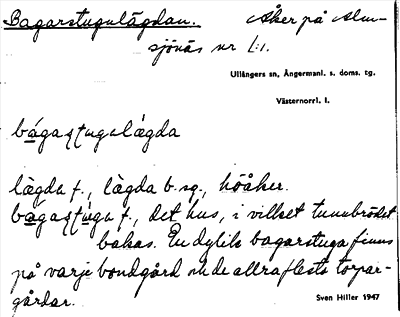 Bagarstugulägdan. Åker på Alm-
sjönäs nr 1:1.
Ullångers sn, Ångermanl. s. doms. tg.
Västernorrl. l.
bágaʂʈugulǽgda
lægda f., lægda b. sg., höåker.
bágaʂʈúga f., det hus, i vilket tunnbrödet
bakas. En dylik bagarstuga finns
på varje bondgård o. de allra flesta torpar-
gårdar.
Sven Hiller 1947